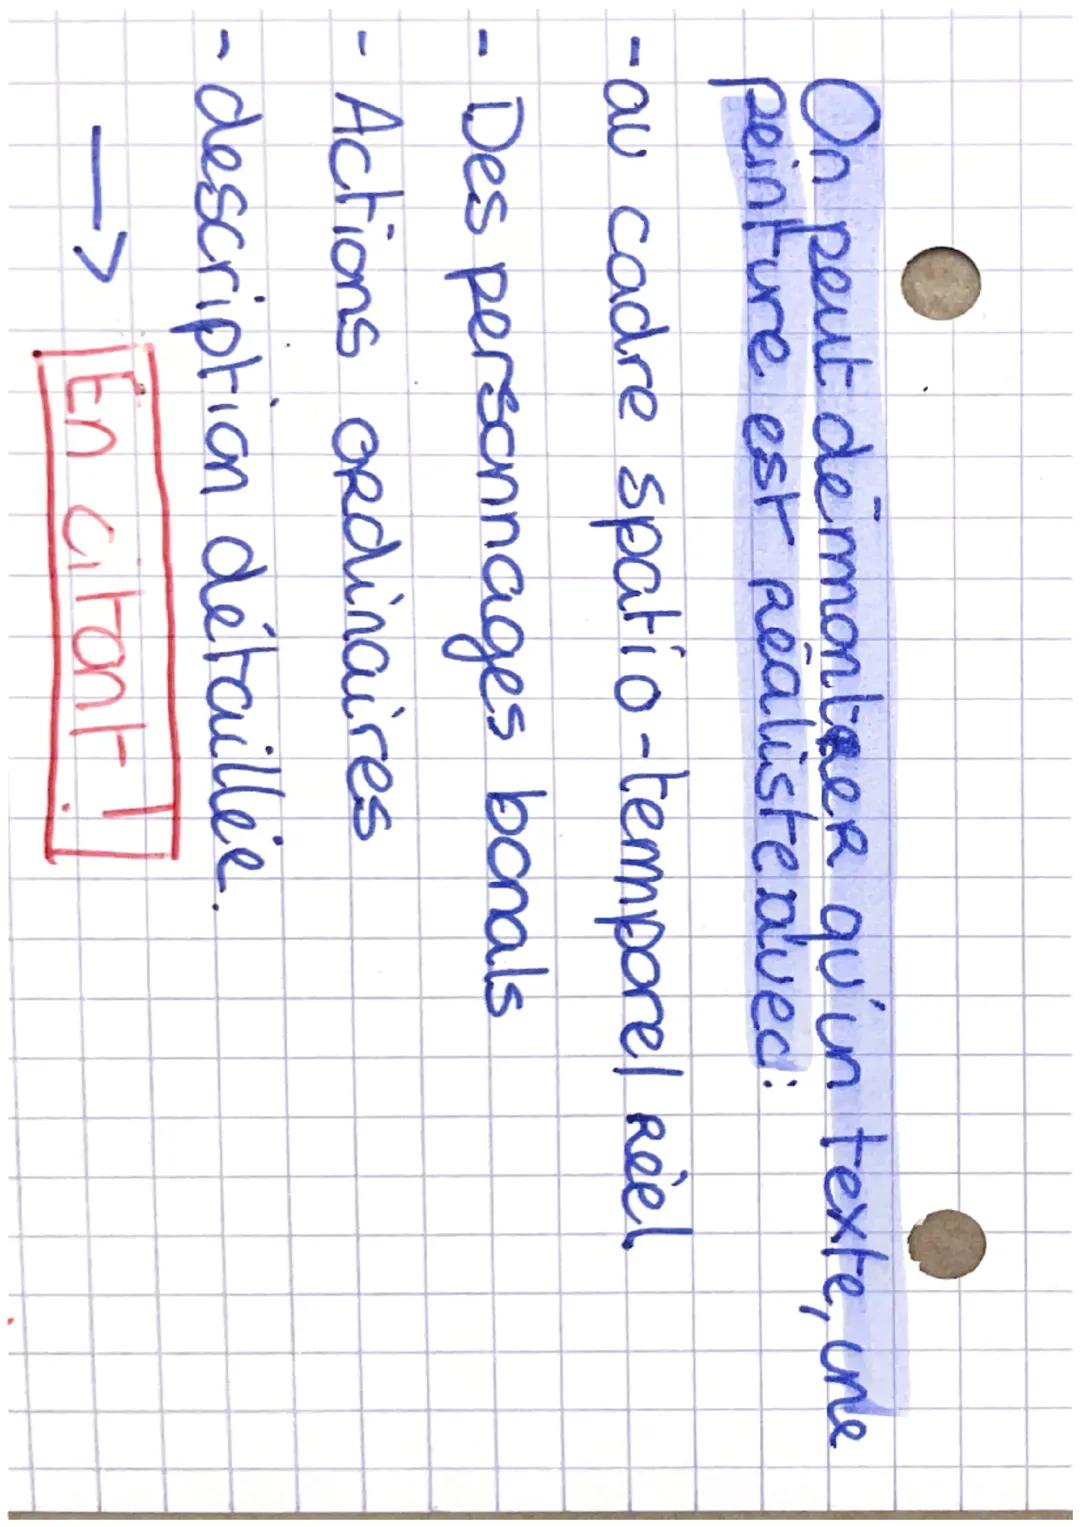 On peut démontrer qu'un texte, une
peinture est réaliste avec :
- au cadre spatio-temporel réel
- Des personnages bonals
- Actions ordinaires
- description détaillée.
→ En citant !